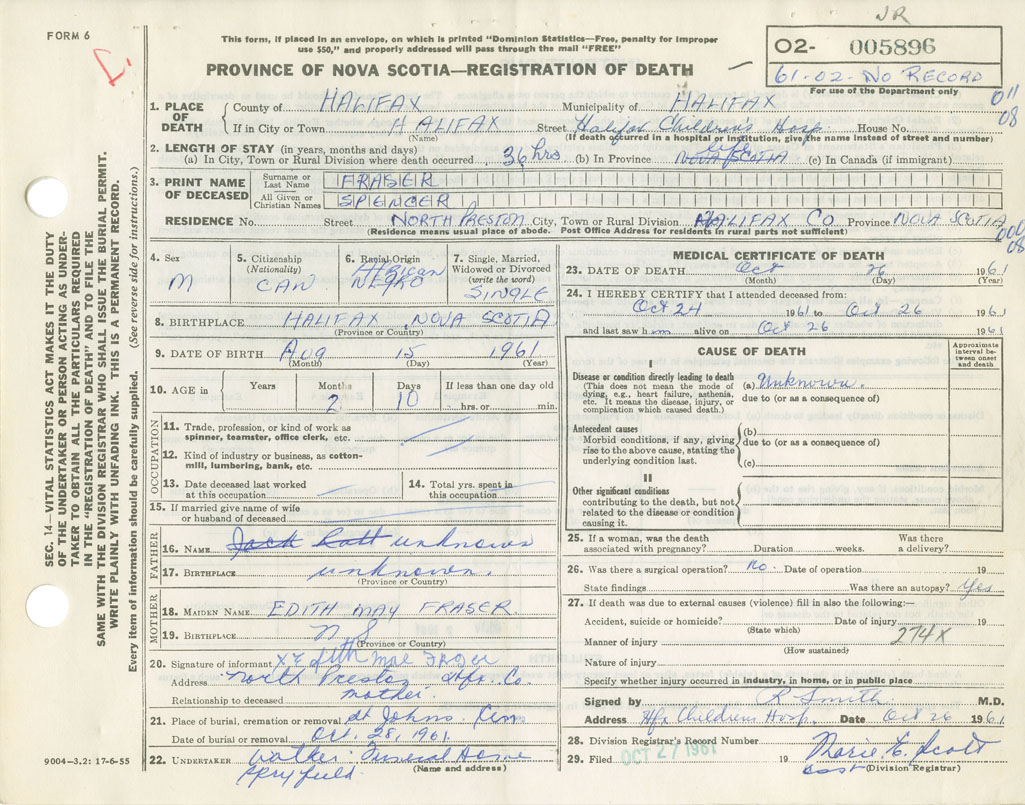 FORM 6
JR
This form, if placed in an envelope, on which is printed "Dominion Statistics—Free, penalty for improper
use $50," and properly addressed will pass through the mail "FREE"
PROVINCE OF NOVA SCOTIA—REGISTRATION OF DEATH
02- 005896
61-02-NO RECORD
For use of the Department only
011
08
1. PLACE OF DEATH
County of HALIFAX Municipality of HALIFAX
If in City or Town HALIFAX Street Halifax Children's Hosp. House No.
(Name) (If death occurred in a hospital or institution, give the name instead of street and number)
2. LENGTH OF STAY (in years, months and days)
(a) In City, Town or Rural Division where death occurred 36 hrs (b) In Province life NOVA SCOTIA (c) In Canada (if immigrant)
3. PRINT NAME OF DECEASED
Surname or Last Name FRASER
All Given or Christian Names SPENCER
RESIDENCE No. Street NORTH PRESTON City, Town or Rural Division HALIFAX CO Province NOVA SCOTIA
(Residence means usual place of abode. Post Office Address for residents in rural parts not sufficient)
08
4. Sex
M
5. Citizenship
(Nationality)
CAN
6. Racial Origin
African
NEGRO
7. Single, Married,
Widowed or Divorced
(write the word)
SINGLE
8. BIRTHPLACE HALIFAX NOVA SCOTIA
(Province or Country)
9. DATE OF BIRTH Aug 15 1961
(Month) (Day) (Year)
10. AGE in
Years Months Days If less than one day old
2 10 hrs. or min.
OCCUPATION
11. Trade, profession, or kind of work as
spinner, teamster, office clerk, etc.
12. Kind of industry or business, as cotton-
mill, lumbering, bank, etc.
13. Date deceased last worked
at this occupation
14. Total yrs. spent in
this occupation
15. If married give name of wife
or husband of deceased
FATHER
16. NAME Jack unknown
17. BIRTHPLACE unknown.
(Province or Country)
MOTHER
18. MAIDEN NAME EDITH MAY FRASER
19. BIRTHPLACE N S
(Province or Country)
20. Signature of informant X Edith Mae
Address North Preston Hfx. Co.
Relationship to deceased mother
21. Place of burial, cremation or removal St Johns. Cem
Date of burial or removal Oct. 28, 1961.
22. UNDERTAKER Walker Funeral Home
(Name and address)
Spryfield.
9004—3.2: 17-6-55
MEDICAL CERTIFICATE OF DEATH
23. DATE OF DEATH Oct 26 1961
(Month) (Day) (Year)
24. I HEREBY CERTIFY that I attended deceased from:
Oct 24 1961 to Oct 26 1961
and last saw him alive on Oct 26 1961
CAUSE OF DEATH
Approximate
interval be-
tween onset
and death
I
Disease or condition directly leading to death
(This does not mean the mode of
dying, e.g., heart failure, asthenia,
etc. It means the disease, injury, or
complication which caused death.)
(a) Unknown.
due to (or as a consequence of)
Antecedent causes
Morbid conditions, if any, giving
rise to the above cause, stating the
underlying condition last.
(b)
due to (or as a consequence of)
(c)
II
Other significant conditions
contributing to the death, but not
related to the disease or condition
causing it.
25. If a woman, was the death
associated with pregnancy? Duration weeks. Was there
a delivery?
26. Was there a surgical operation? No. Date of operation 19
State findings Was there an autopsy? Yes
27. If death was due to external causes (violence) fill in also the following:—
Accident, suicide or homicide? Date of injury 19
(State which)
Manner of injury 274X
(How sustained)
Nature of injury
Specify whether injury occurred in industry, in home, or in public place
Signed by R Smith M.D.
Address Hfx Childrens Hosp. Date Oct 26 1961
28. Division Registrar's Record Number
29. Filed OCT 27 1961 19 Marie E. Scott
(Division Registrar)
SEC. 14—VITAL STATISTICS ACT MAKES IT THE DUTY
OF THE UNDERTAKER OR PERSON ACTING AS UNDER-
TAKER TO OBTAIN ALL THE PARTICULARS REQUIRED
IN THE "REGISTRATION OF DEATH" AND TO FILE THE
SAME WITH THE DIVISION REGISTRAR WHO SHALL ISSUE THE BURIAL PERMIT.
WRITE PLAINLY WITH UNFADING INK. THIS IS A PERMANENT RECORD.
Every item of information should be carefully supplied. (See reverse side for instructions.)